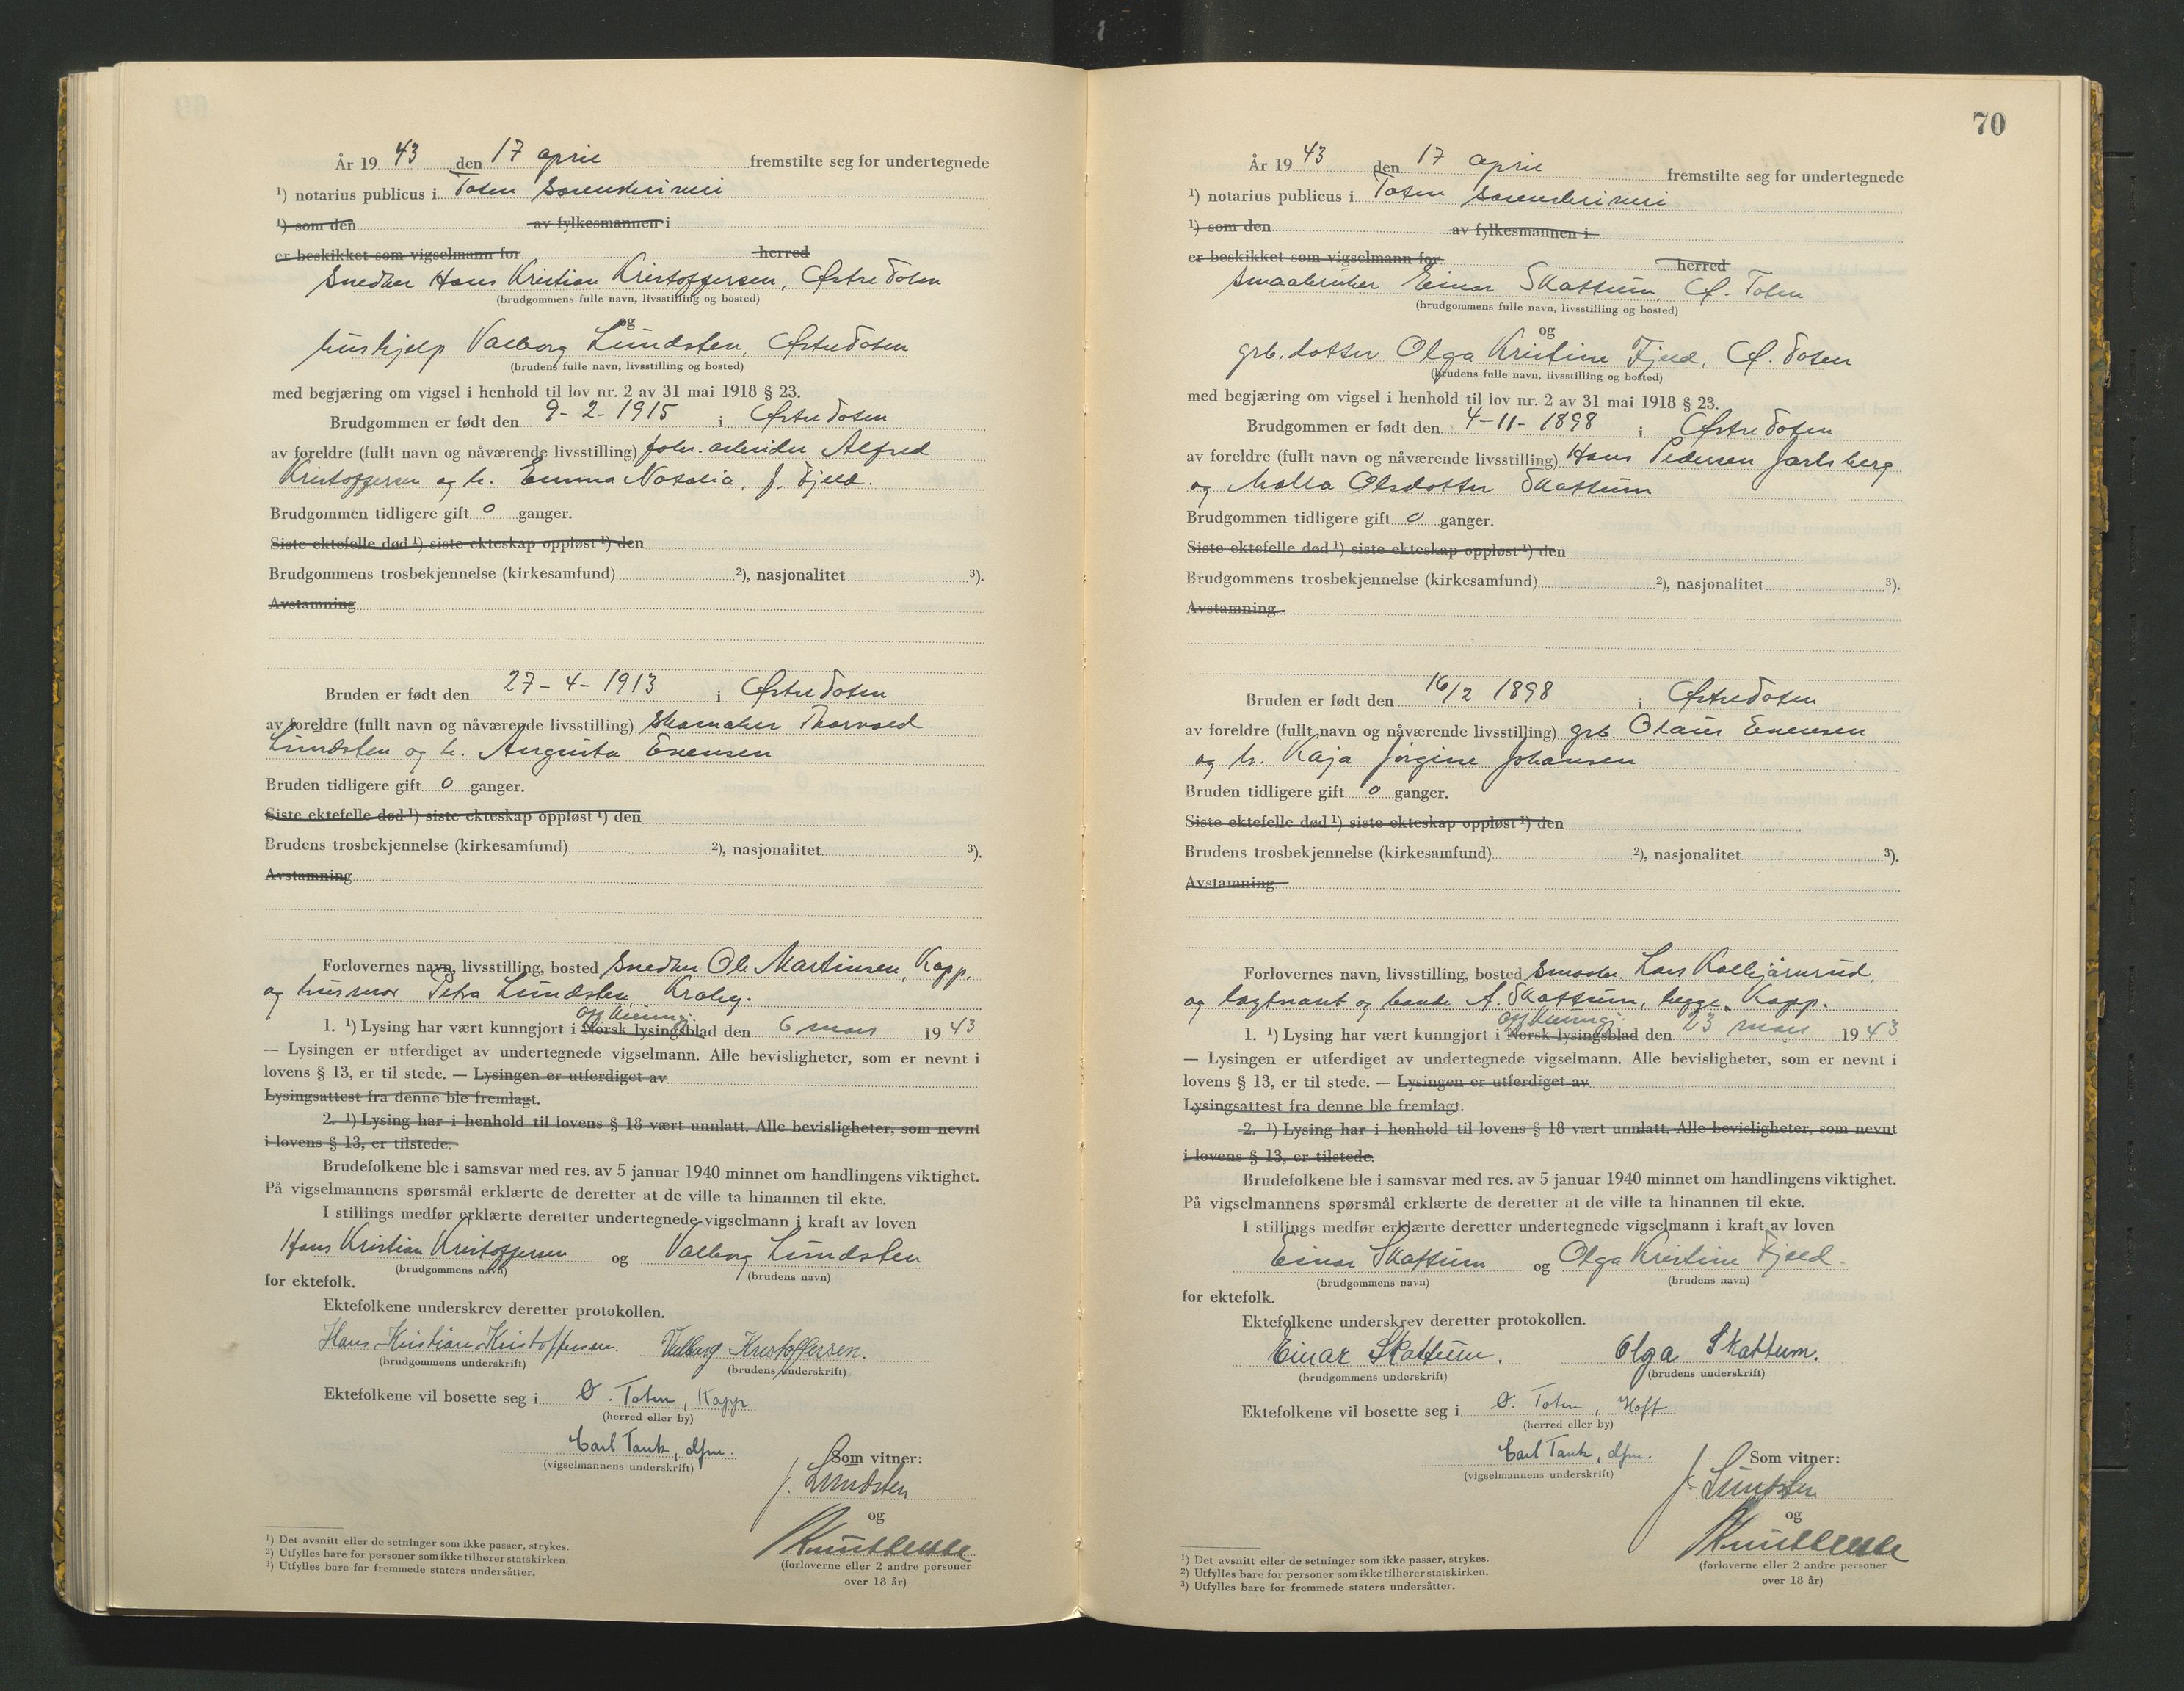 År 19 43 den 17 april fremstilte seg for undertegnede
¹) notarius publicus i Toten sorenskriveri
¹) som den av fylkesmannen i
er beskikket som vigselmann for herred
Snedker Hans Kristian Kristoffersen, Østre Toten
(brudgommens fulle navn, livsstilling og bosted)
og
hushjelp Valborg Lundsten, Østre Toten
(brudens fulle navn, livsstilling og bosted)
med begjæring om vigsel i henhold til lov nr. 2 av 31 mai 1918 § 23.
Brudgommen er født den 9-2-1915 i Østre Toten
av foreldre (fullt navn og nåværende livsstilling) arbeider Alfred
Kristoffersen og h. Emma Natalia, f. Fjeld.
Brudgommen tidligere gift 0 ganger.
Siste ektefelle død ¹) siste ekteskap oppløst ¹) den
Brudgommens trosbekjennelse (kirkesamfund) ²), nasjonalitet ³).
Avstamning
Bruden er født den 27-4-1913 i Østre Toten
av foreldre (fullt navn og nåværende livsstilling) skomaker Thorvald
Lundsten og h. Augusta Evensen
Bruden tidligere gift 0 ganger.
Siste ektefelle død ¹) siste ekteskap oppløst ¹) den
Brudens trosbekjennelse (kirkesamfund) ²), nasjonalitet ³).
Avstamning
Forlovernes navn, livsstilling, bosted Snedker Ole Martinsen, Kapp.
og husmor Petra Lundsten, Kraby.
off. kunngj.
1. ¹) Lysing har vært kunngjort i Norsk lysingsblad den 6 mars 19 43
— Lysingen er utferdiget av undertegnede vigselmann. Alle bevisligheter, som er nevnt i
lovens § 13, er til stede. — Lysingen er utferdiget av
Lysingsattest fra denne ble fremlagt.
2. ¹) Lysing har i henhold til lovens § 18 vært unnlatt. Alle bevisligheter, som nevnt
i lovens § 13, er tilstede.
Brudefolkene ble i samsvar med res. av 5 januar 1940 minnet om handlingens viktighet.
På vigselmannens spørsmål erklærte de deretter at de ville ta hinannen til ekte.
I stillings medfør erklærte deretter undertegnede vigselmann i kraft av loven
Hans Kristian Kristoffersen og Valborg Lundsten
(brudgommens navn) (brudens navn)
for ektefolk.
Ektefolkene underskrev deretter protokollen.
Hans Kristian Kristoffersen. Valborg Kristoffersen.
(brudgommens underskrift) (brudens underskrift)
Ektefolkene vil bosette seg i Ø. Toten, Kapp
(herred eller by)
Carl Tank, dfm.
(vigselmannens underskrift)
Som vitner:
J. Lundsten
og
(forloverne eller 2 andre personer
over 18 år)
¹) Det avsnitt eller de setninger som ikke passer, strykes.
²) Utfylles bare for personer som ikke tilhører statskirken.
³) Utfylles bare for fremmede staters undersåtter.
70
År 19 43 den 17 april fremstilte seg for undertegnede
¹) notarius publicus i Toten sorenskriveri
¹) som den av fylkesmannen i
er beskikket som vigselmann for herred
Smaabruker Einar Skattum, Ø. Toten
(brudgommens fulle navn, livsstilling og bosted)
og
grb. datter Olga Kristine Fjeld, Ø. Toten
(brudens fulle navn, livsstilling og bosted)
med begjæring om vigsel i henhold til lov nr. 2 av 31 mai 1918 § 23.
Brudgommen er født den 4-11-1898 i Østre Toten
av foreldre (fullt navn og nåværende livsstilling) Hans Pedersen Jarlsberg
og Malla Olsdotter Skattum
Brudgommen tidligere gift 0 ganger.
Siste ektefelle død ¹) siste ekteskap oppløst ¹) den
Brudgommens trosbekjennelse (kirkesamfund) ²), nasjonalitet ³).
Avstamning
Bruden er født den 16/2 1898 i Østre Toten
av foreldre (fullt navn og nåværende livsstilling) grb. Olaus Evensen
og h. Kaja Jørgine Johansen
Bruden tidligere gift 0 ganger.
Siste ektefelle død ¹) siste ekteskap oppløst ¹) den
Brudens trosbekjennelse (kirkesamfund) ²), nasjonalitet ³).
Avstamning
Forlovernes navn, livsstilling, bosted Lars
og og A. Skattum, begge Kapp.
off. kunngj.
1. ¹) Lysing har vært kunngjort i Norsk lysingsblad den 23 mars 19 43
— Lysingen er utferdiget av undertegnede vigselmann. Alle bevisligheter, som er nevnt i
lovens § 13, er til stede. — Lysingen er utferdiget av
Lysingsattest fra denne ble fremlagt.
2. ¹) Lysing har i henhold til lovens § 18 vært unnlatt. Alle bevisligheter, som nevnt
i lovens § 13, er tilstede.
Brudefolkene ble i samsvar med res. av 5 januar 1940 minnet om handlingens viktighet.
På vigselmannens spørsmål erklærte de deretter at de ville ta hinannen til ekte.
I stillings medfør erklærte deretter undertegnede vigselmann i kraft av loven
Einar Skattum og Olga Kristine Fjeld.
(brudgommens navn) (brudens navn)
for ektefolk.
Ektefolkene underskrev deretter protokollen.
Einar Skattum. Olga Skattum.
(brudgommens underskrift) (brudens underskrift)
Ektefolkene vil bosette seg i Ø. Toten, Hoff
(herred eller by)
Carl Tank, dfm.
(vigselmannens underskrift)
Som vitner:
J. Lundsten
og
(forloverne eller 2 andre personer
over 18 år)
¹) Det avsnitt eller de setninger som ikke passer, strykes.
²) Utfylles bare for personer som ikke tilhører statskirken.
³) Utfylles bare for fremmede staters undersåtter.